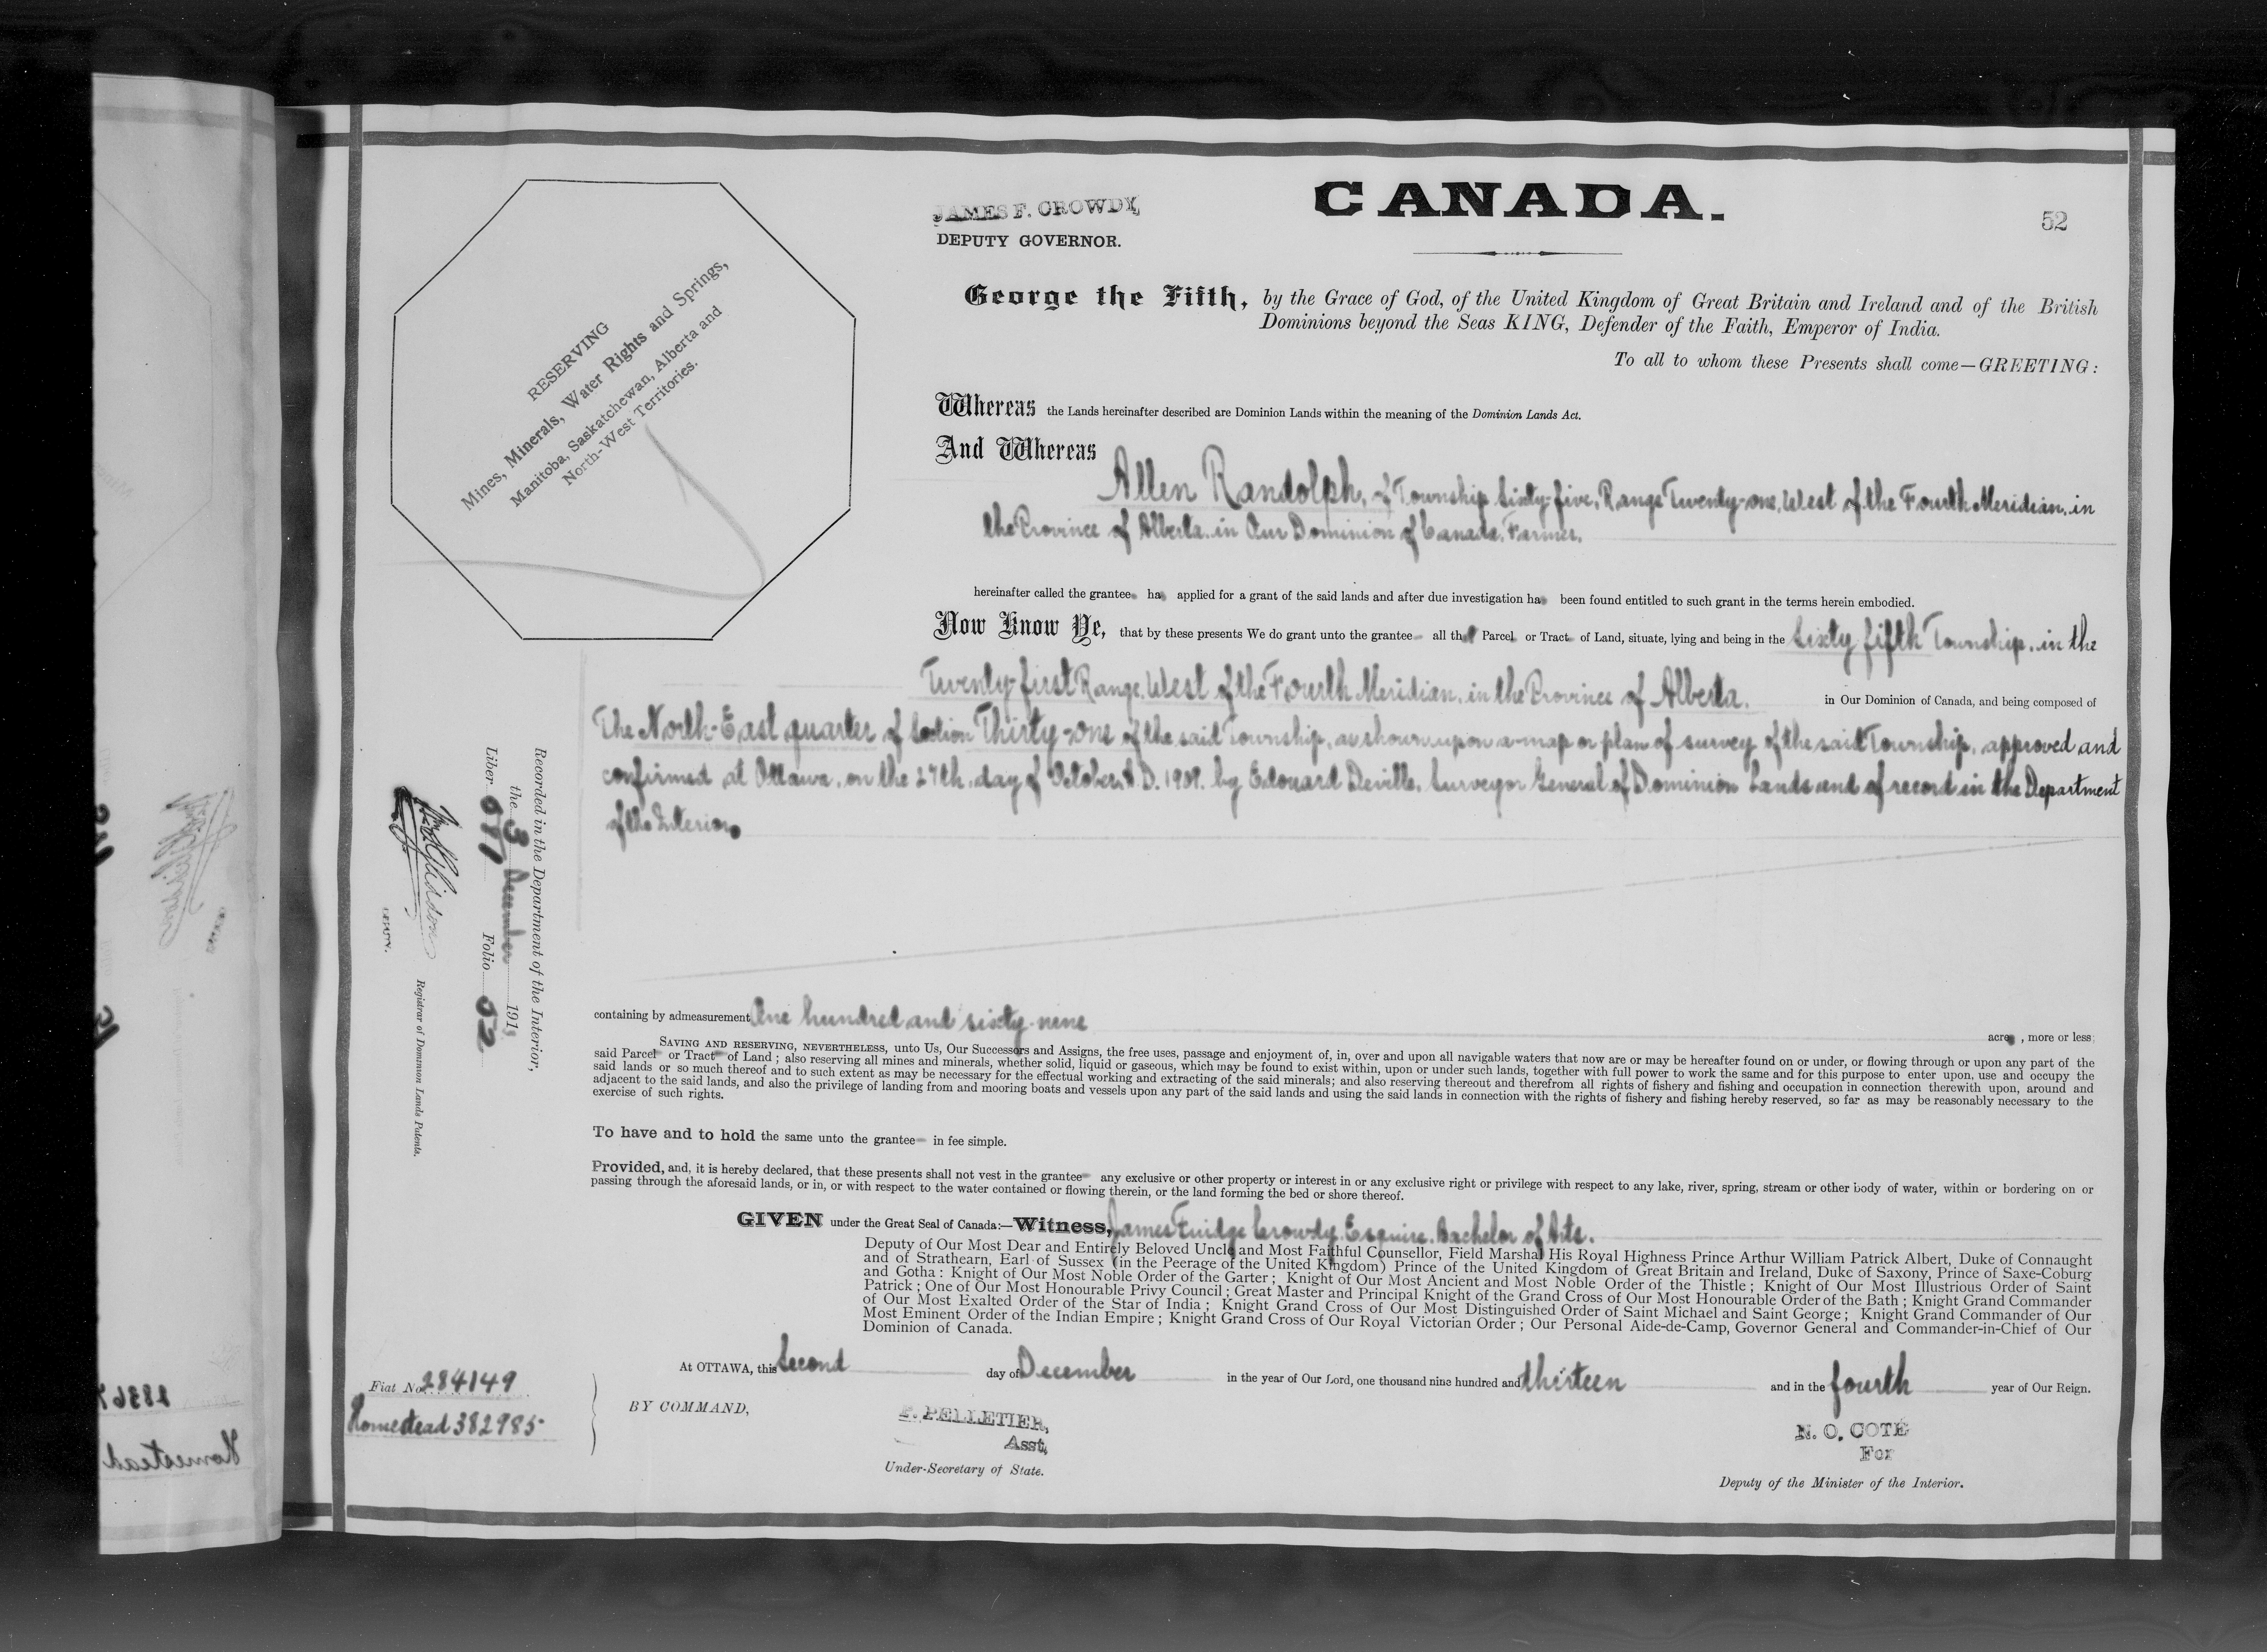 CANADA.
52
JAMES F. CROWDY,
DEPUTY GOVERNOR.
RESERVING
Mines, Minerals, Water Rights and Springs,
Manitoba, Saskatchewan, Alberta and
North-West Territories.
George the Fifth, by the Grace of God, of the United Kingdom of Great Britain and Ireland and of the British
Dominions beyond the Seas KING, Defender of the Faith, Emperor of India.
To all to whom these Presents shall come—GREETING:
Whereas the Lands hereinafter described are Dominion Lands within the meaning of the Dominion Lands Act.
And Whereas
Allen Randolph, of Township Sixty-five, Range Twenty-one, West of the Fourth Meridian, in
the Province of Alberta, in Our Dominion of Canada, Farmer,
hereinafter called the grantee has applied for a grant of the said lands and after due investigation has been found entitled to such grant in the terms herein embodied.
Now Know Ye, that by these presents We do grant unto the grantee all that Parcel or Tract of Land, situate, lying and being in the Sixty-fifth Township, in the
Twenty-first Range, West of the Fourth Meridian, in the Province of Alberta, in Our Dominion of Canada, and being composed of
The North-East quarter of Section Thirty-one of the said Township, as shown upon a map or plan of survey of the said Township, approved and
confirmed at Ottawa, on the 27th day of October, A.D. 1908, by Edouard Deville, Surveyor General of Dominion Lands and of record in the Department
of the Interior,
containing by admeasurement One hundred and sixty-nine acres, more or less;
SAVING AND RESERVING, NEVERTHELESS, unto Us, Our Successors and Assigns, the free uses, passage and enjoyment of, in, over and upon all navigable waters that now are or may be hereafter found on or under, or flowing through or upon any part of the
said Parcel or Tract of Land; also reserving all mines and minerals, whether solid, liquid or gaseous, which may be found to exist within, upon or under such lands, together with full power to work the same and for this purpose to enter upon, use and occupy the
said lands or so much thereof and to such extent as may be necessary for the effectual working and extracting of the said minerals; and also reserving thereout and therefrom all rights of fishery and fishing and occupation in connection therewith upon, around and
adjacent to the said lands, and also the privilege of landing from and mooring boats and vessels upon any part of the said lands and using the said lands in connection with the rights of fishery and fishing hereby reserved, so far as may be reasonably necessary to the
exercise of such rights.
To have and to hold the same unto the grantee in fee simple.
Provided, and, it is hereby declared, that these presents shall not vest in the grantee any exclusive or other property or interest in or any exclusive right or privilege with respect to any lake, river, spring, stream or other body of water, within or bordering on or
passing through the aforesaid lands, or in, or with respect to the water contained or flowing therein, or the land forming the bed or shore thereof.
GIVEN under the Great Seal of Canada:—Witness, James Fuidge Crowdy, Esquire, Bachelor of Arts.
Deputy of Our Most Dear and Entirely Beloved Uncle and Most Faithful Counsellor, Field Marshal His Royal Highness Prince Arthur William Patrick Albert, Duke of Connaught
and of Strathearn, Earl of Sussex (in the Peerage of the United Kingdom) Prince of the United Kingdom of Great Britain and Ireland, Duke of Saxony, Prince of Saxe-Coburg
and Gotha: Knight of Our Most Noble Order of the Garter; Knight of Our Most Ancient and Most Noble Order of the Thistle; Knight of Our Most Illustrious Order of Saint
Patrick; One of Our Most Honourable Privy Council; Great Master and Principal Knight of the Grand Cross of Our Most Honourable Order of the Bath; Knight Grand Commander
of Our Most Exalted Order of the Star of India; Knight Grand Cross of Our Most Distinguished Order of Saint Michael and Saint George; Knight Grand Commander of Our
Most Eminent Order of the Indian Empire; Knight Grand Cross of Our Royal Victorian Order; Our Personal Aide-de-Camp, Governor General and Commander-in-Chief of Our
Dominion of Canada.
At OTTAWA, this Second day of December in the year of Our Lord, one thousand nine hundred and thirteen and in the fourth year of Our Reign.
BY COMMAND,
P. PELLETIER,
Asst.
Under-Secretary of State.
N. O. COTÉ
For
Deputy of the Minister of the Interior.
Fiat No. 284149
Homestead 382985
Recorded in the Department of the Interior,
the 3 December 1913
Liber 677 Folio 52
DEPUTY.
Registrar of Dominion Lands Patents.
Homestead